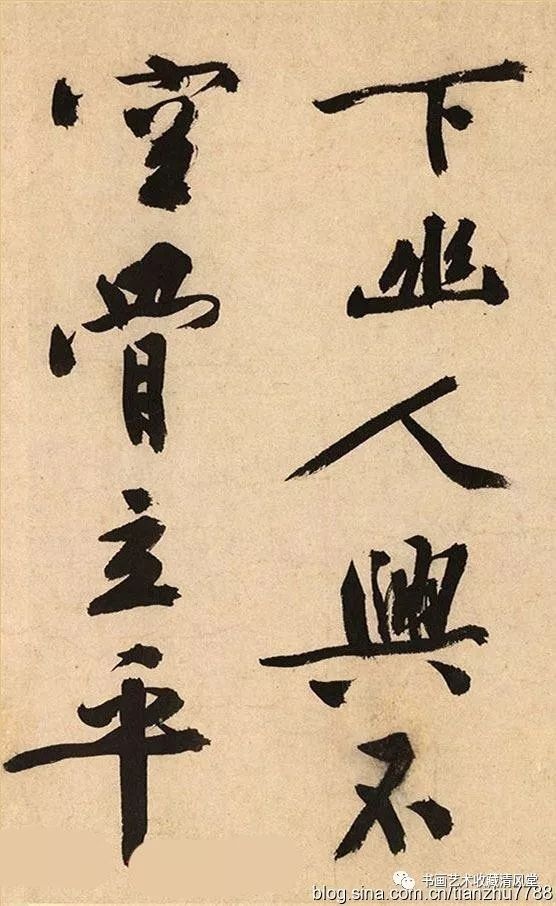 下幽人興不
空骨立平
书画艺术收藏清风堂
blog.sina.com.cn/tianzhu7788